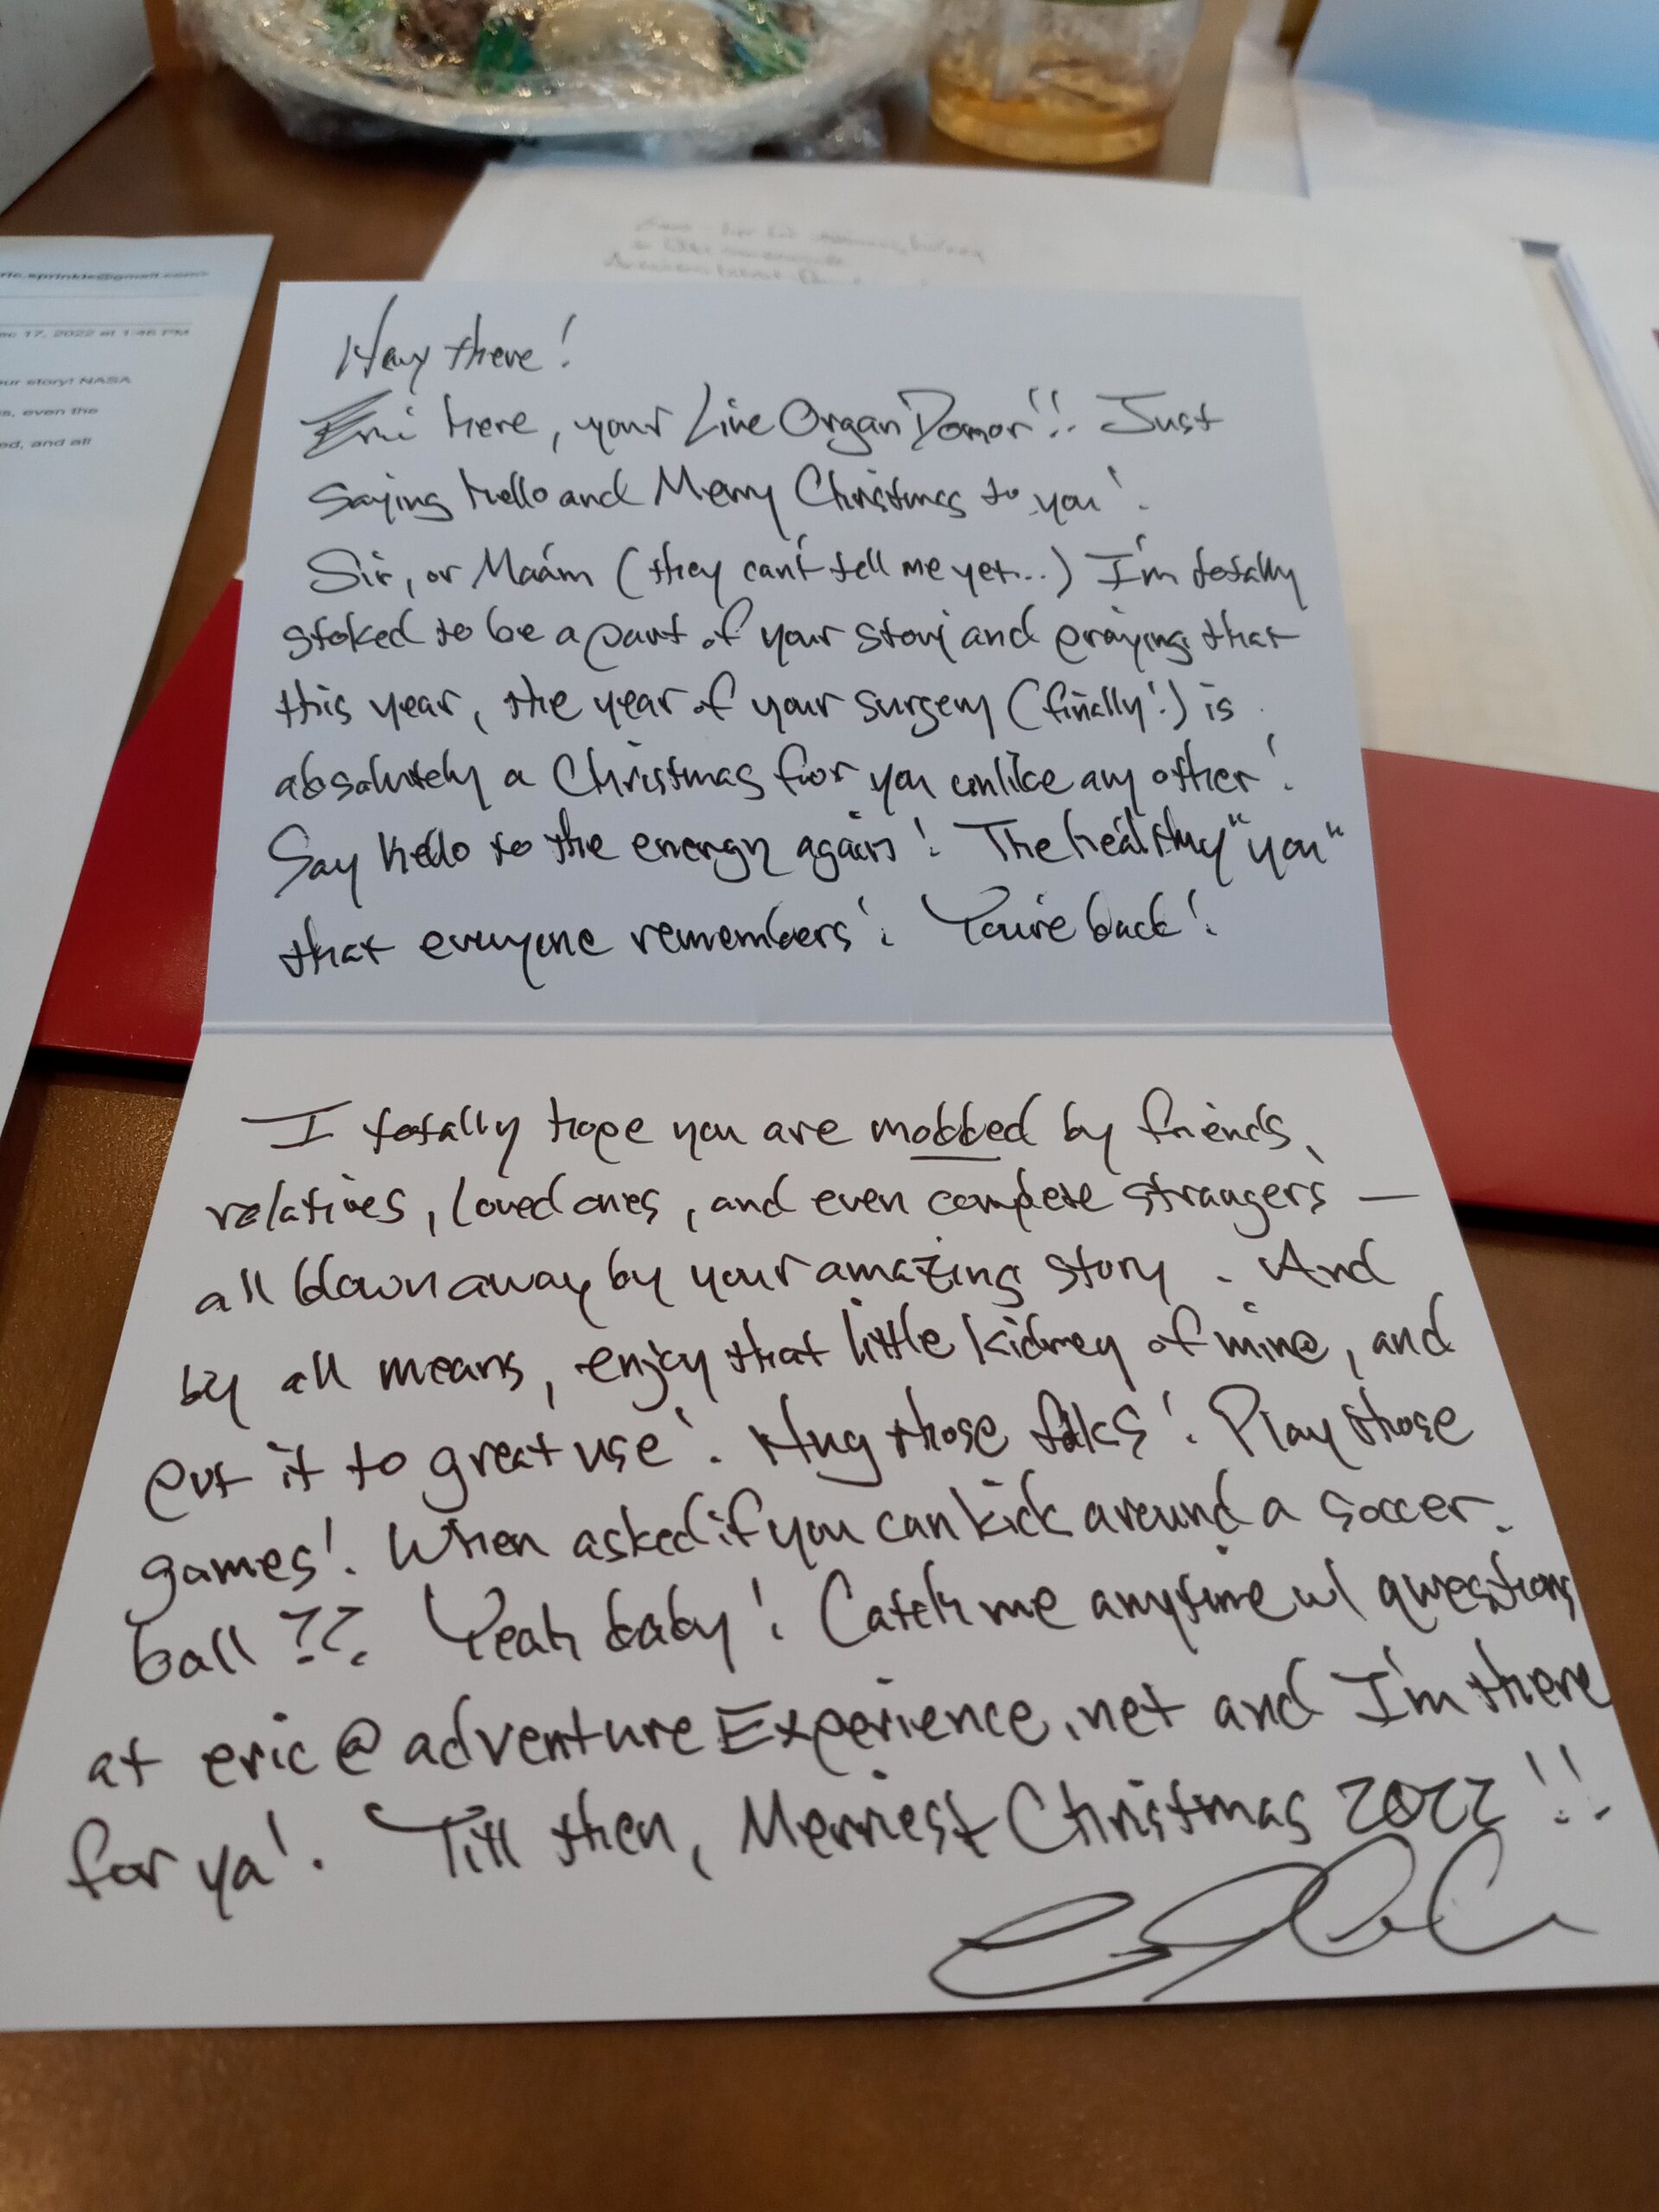 ric.sprinkle@gmail.com>
ec 17, 2022 at 1:46 PM
ur story! NASA
s, even the
ed, and all
Hay there!
Eric here, your Live Organ Donor!! Just
saying hello and Merry Christmas to you!
Sir, or Ma'am (they can't tell me yet...) I'm totally
stoked to be a part of your story and praying that
this year, the year of your surgery (finally!) is
absolutely a Christmas for you unlike any other!
Say hello to the energy again! The healthy "you"
that everyone remembers! You're back!
I totally hope you are mobbed by friends,
relatives, loved ones, and even complete strangers —
all blown away by your amazing story. And
by all means, enjoy that little kidney of mine, and
put it to great use! Hug those folks! Play those
games! When asked if you can kick around a soccer
ball?? Yeah baby! Catch me anytime w/ questions
at eric@adventureExperience.net and I'm there
for ya! Till then, Merriest Christmas 2022!!